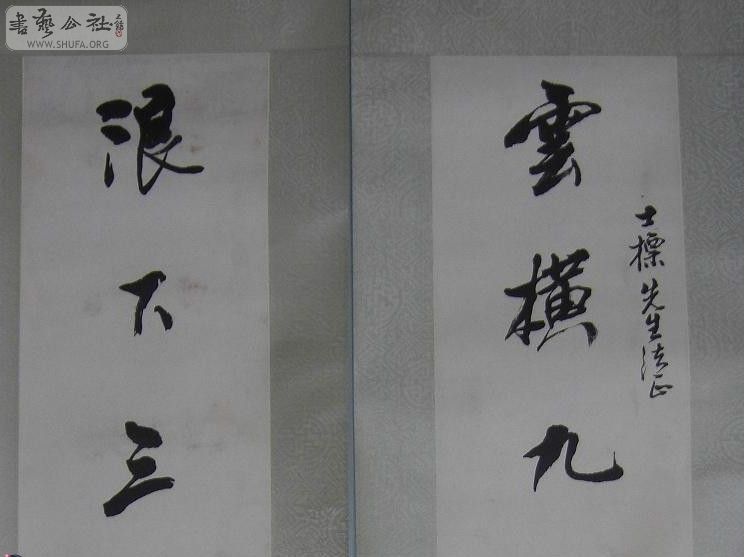 書藝公社
WWW.SHUFA.ORG
士標先生法正
雲橫九
浪下三